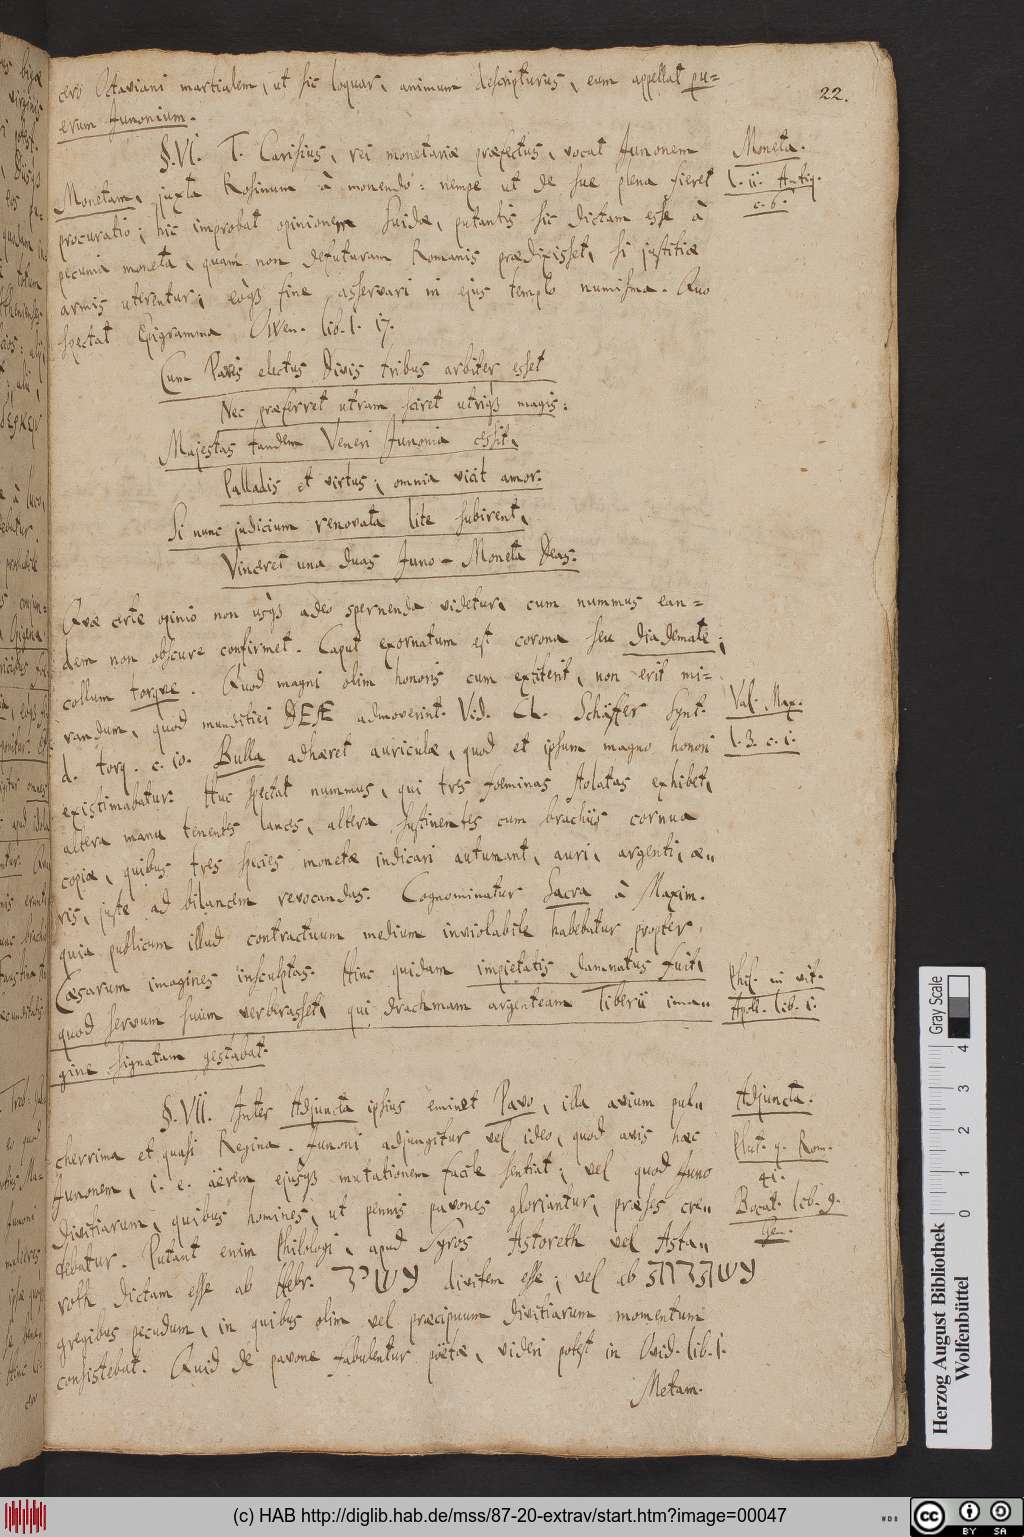 22.
cero Octaviani martialem, ut sic loquar, animum descripturus, eum appellat pu=
erum Junonium.
§. VI. T. Carisius, rei monetariæ præfectus, vocat Junonem
Moneta.
Monetam, juxta Rosinum à monendo: nempe ut de sue plena fieret
l. ii. Antiq.
c. 6.
procuratio; hic improbat opinionem Suidæ, putantis sic dictam esse à
pecunia moneta, quam non defuturam Romanis prædixisset, si justitiæ
armis uterentur; eoqз fine asservari in ejus templo numisma. Quo
spectat Epigramma Owen. lib. 1. 17.
Cum Paris electus Divis tribus arbiter esset
Nec præferret utram sciret utriqз magis:
Majestas tandem Veneri Junonia cessit,
Palladis et virtus; omnia vicit amor.
Si nunc judicium renovata lite subirent,
Vinceret una duas Juno - Moneta Deas.
Quæ certe opinio non usqз adeo spernenda videtur, cum nummus ean=
dem non obscure confirmet. Caput exornatum est corona seu diademate;
collum torqve. Quod magni olim honoris cum extiterit, non erit mi=
Val. Max.
l. 3. c. 1.
randum, quod munditiei DEÆ admoverint. Vid. Cl. Schäffer Synt.
d. torq. c. 10. Bulla adhæret auriculæ, quod et ipsum magno honori
existimabatur. Huc spectat nummus, qui tres foeminas stolatas exhibet,
altera manu tenentes lances, altera sustinentes cum brachijs cornua
copiæ, quibus tres species monetæ indicari autumant, auri, argenti, æ=
ris, juste ad bilancem revocandas. Cognominatur Sacra à Maxim.
quia publicum illud contractuum medium inviolabile habebatur propter
Cæsarum imagines insculptas. Hinc quidam impietatis damnatus fuit,
Phil. in vit.
Apoll. lib. 1.
quod servum suum verberasset, qui drachmam argenteam Tiberii ima=
gine signatam gestabat.
§. VII. Inter Adjuncta ipsius eminet Pavo, illa avium pul=
Adjuncta.
cherrima et quasi Regina. Junoni adjungitur vel ideo, quod avis hæc
Plut. q. Rom.
41.
Junonem, i. e. aërem ejusqз mutationem facile sentiat; vel quod Juno
Bocat. lib. 9.
Gen.
divitiarum, quibus homines, ut pennis pavones gloriantur, præses cre=
debatur. Putant enim Philologi, apud Syros Astoreth vel Asta=
roth dictam esse ab Hebr. עשיר divitem esse; vel ab עשתרות
gregibus pecudum, in quibus olim vel præcipuum divitiarum momentum
consistebat. Quid de pavone fabulentur poëtæ, videri potest in Ovid. lib. 1.
Metam.
Gray Scale
0 1 2 3 4
Herzog August Bibliothek
Wolfenbüttel
(c) HAB http://diglib.hab.de/mss/87-20-extrav/start.htm?image=00047
cc BY SA